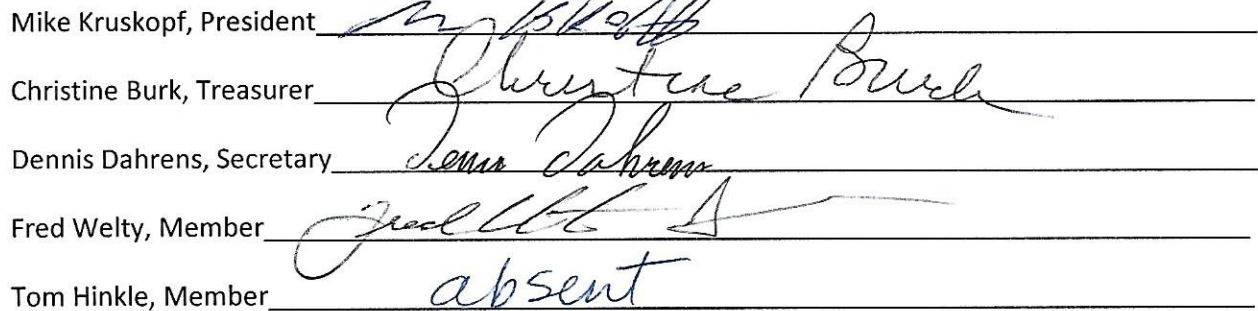 Mike Kruskopf, President
Christine Burk, Treasurer Christine Burk
Dennis Dahrens, Secretary Dennis Dahrens
Fred Welty, Member Fred
Tom Hinkle, Member absent